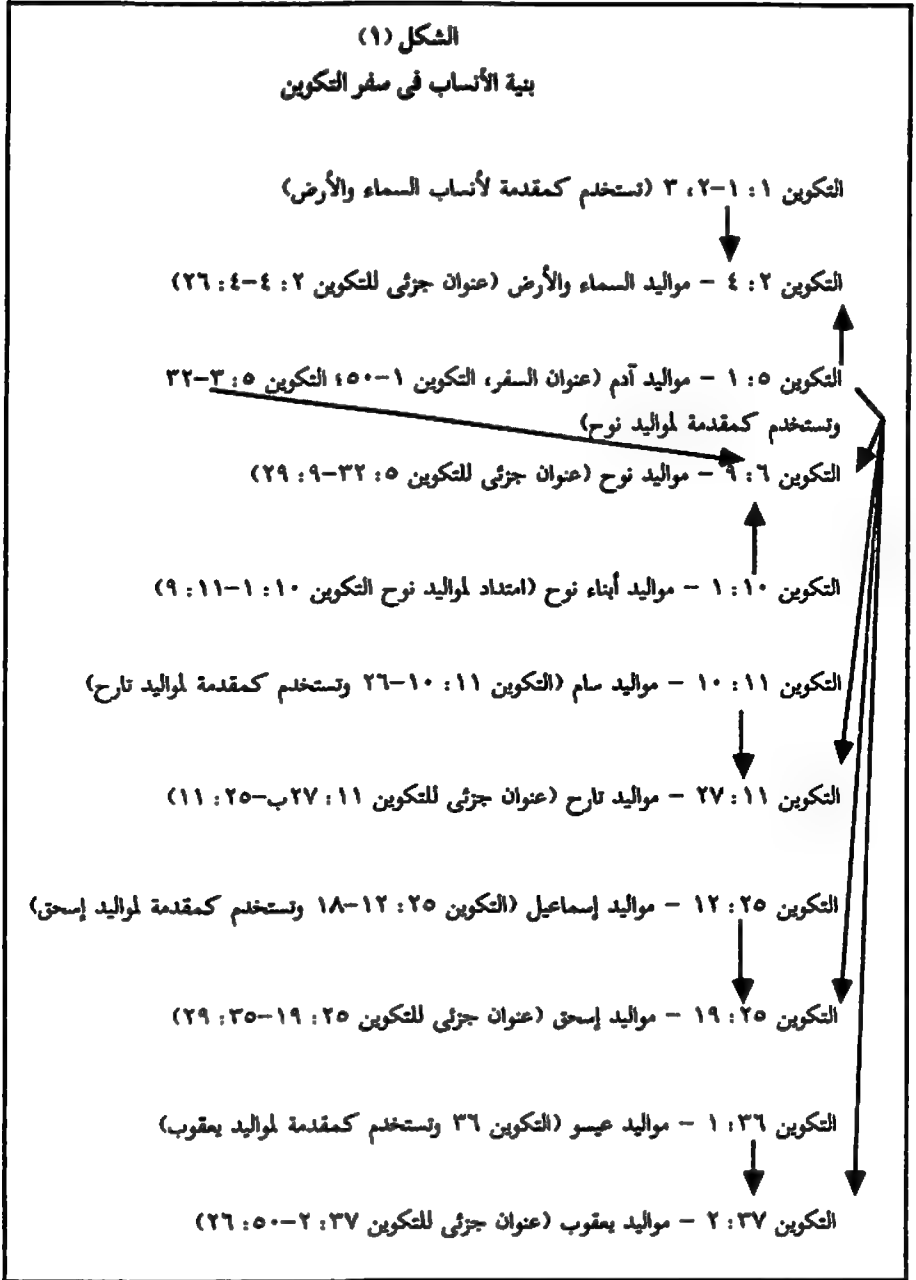 الشكل (١)
بنية الأنساب في سفر التكوين
التكوين ١ : ١-٢، ٣ (تستخدم كمقدمة لأنساب السماء والأرض)
التكوين ٢ : ٤ – مواليد السماء والأرض (عنوان جزئى للتكوين ٢ : ٤-٤ : ٢٦)
التكوين ٥ : ١ – مواليد آدم (عنوان السفر، التكوين ١-٥٠؛ التكوين ٥ : ٣-٣٢
وتستخدم كمقدمة لمواليد نوح)
التكوين ٦ : ٩ – مواليد نوح (عنوان جزئى للتكوين ٥ : ٣٢-٩ : ٢٩)
التكوين ١٠ : ١ – مواليد أبناء نوح (امتداد لمواليد نوح التكوين ١٠ : ١-١١ : ٩)
التكوين ١١ : ١٠ – مواليد سام (التكوين ١١ : ١٠-٢٦ وتستخدم كمقدمة لمواليد تارح)
التكوين ١١ : ٢٧ – مواليد تارح (عنوان جزئى للتكوين ١١ : ٢٧ب-٢٥ : ١١)
التكوين ٢٥ : ١٢ – مواليد إسماعيل (التكوين ٢٥ : ١٢-١٨ وتستخدم كمقدمة لمواليد إسحق)
التكوين ٢٥ : ١٩ – مواليد إسحق (عنوان جزئى للتكوين ٢٥ : ١٩-٣٥ : ٢٩)
التكوين ٣٦ : ١ – مواليد عيسو (التكوين ٣٦ وتستخدم كمقدمة لمواليد يعقوب)
التكوين ٣٧ : ٢ – مواليد يعقوب (عنوان جزئى للتكوين ٣٧ : ٢-٥٠ : ٢٦)